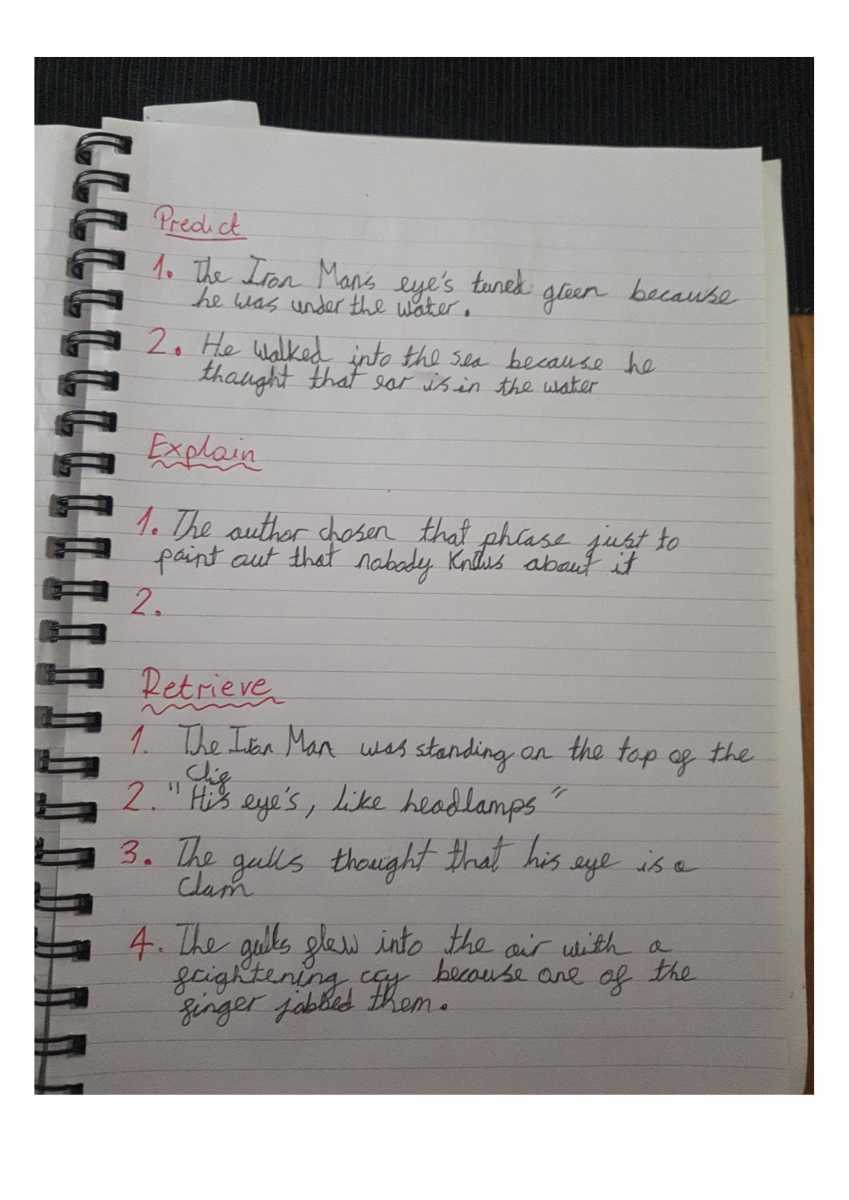 Predict
1. The Iron Man's eye's tuned green because
he was under the water.
2. He walked into the sea because he
thaught that ear is in the water
Explain
1. The author chosen that phrase just to
point out that nobody knows about it
2.
Retrieve
1. The Iron Man was standing on the top of the
clif
2. "His eye's, like headlamps"
3. The gulls thought that his eye is a
clam
4. The gulls flew into the air with a
frightening cry because one of the
finger jabbed them.